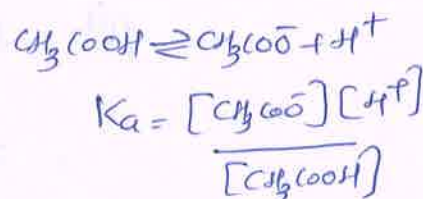 CH₃COOH ⇌ CH₃COO⁻ + H⁺
Ka = [CH₃COO⁻] [H⁺]
[CH₃COOH]